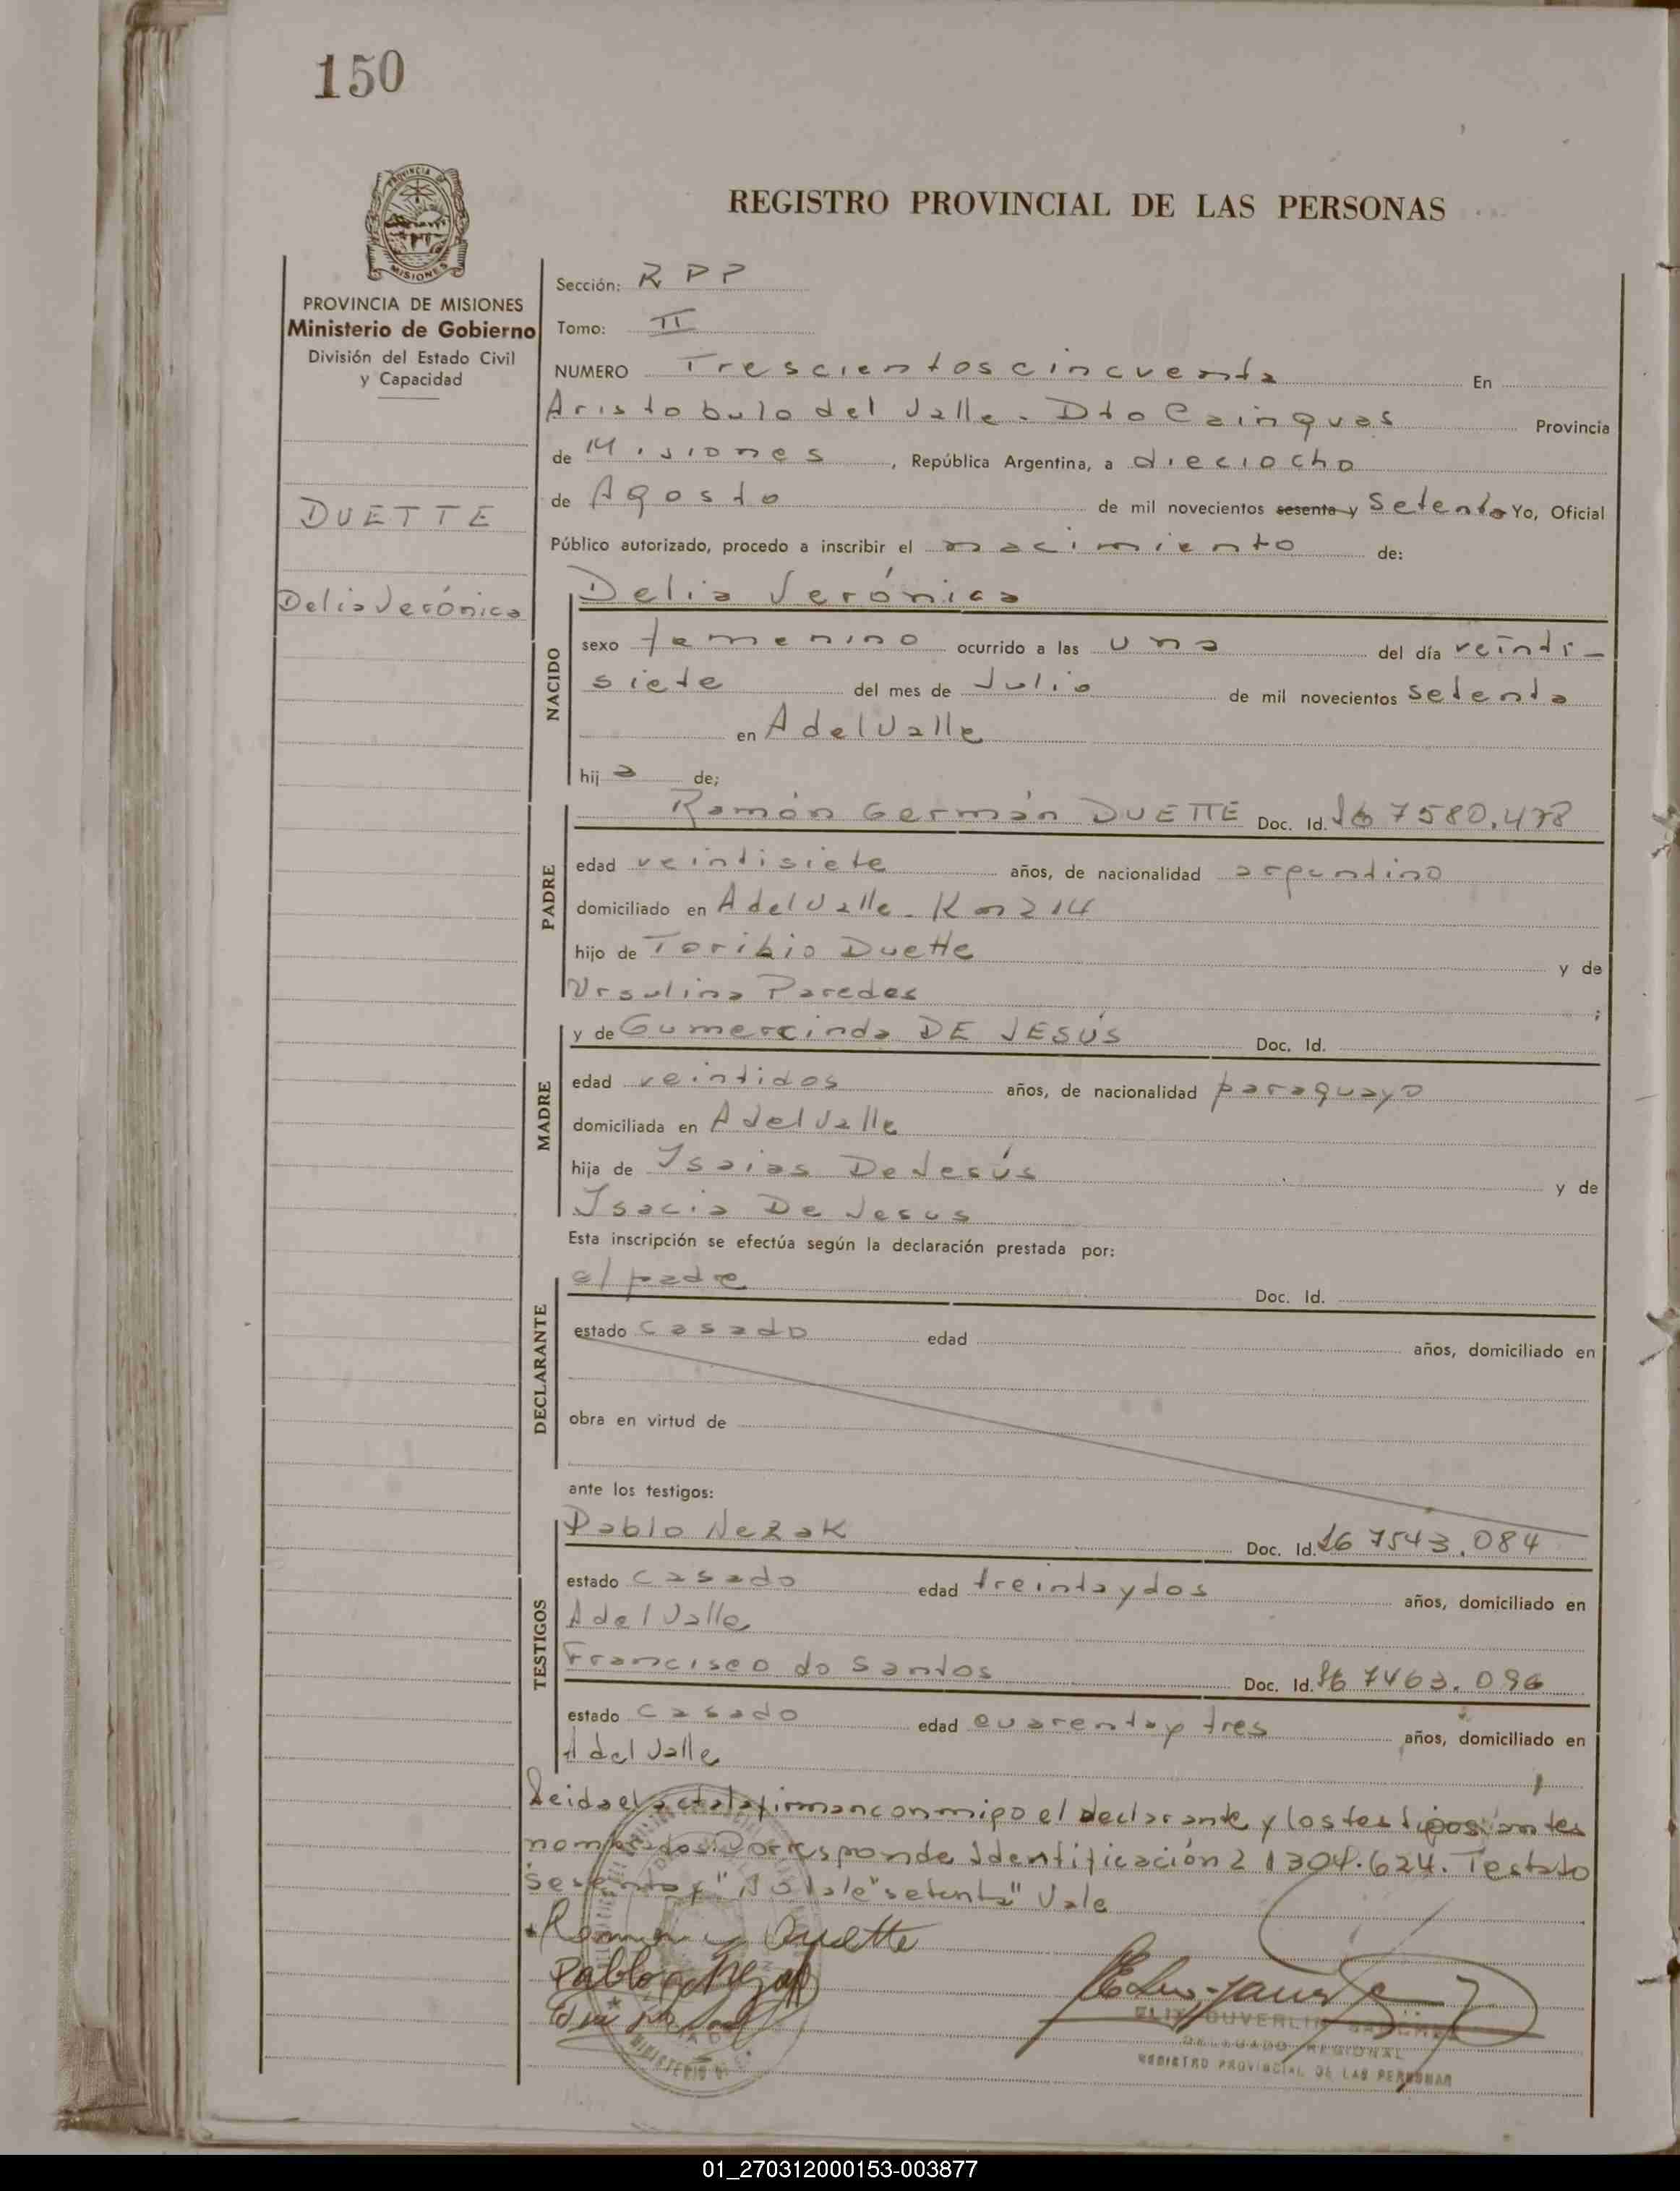 150
PROVINCIA DE
MISIONES
REGISTRO PROVINCIAL DE LAS PERSONAS
PROVINCIA DE MISIONES
Ministerio de Gobierno
División del Estado Civil
y Capacidad
DUETTE
Delia Verónica
Sección: R P P
Tomo: II
NUMERO Trescientos cincuenta En
Aristobulo del Valle - Dto Cainguas Provincia
de Misiones, República Argentina, a dieciocho
de Agosto de mil novecientos sesenta y Setenta Yo, Oficial
Público autorizado, procedo a inscribir el nacimiento de:
NACIDO
Delia Verónica
sexo femenino ocurrido a las una del día veinti-
siete del mes de Julio de mil novecientos setenta
en A del Valle
hija de;
PADRE
Ramón Germán DUETTE Doc. Id. 7580.478
edad veintisiete años, de nacionalidad argentino
domiciliado en A del Valle - Km 214
hijo de Toribio Duette y de
Ursulina Paredes ;
MADRE
y de Gumercinda DE JESÚS Doc. Id.
edad veintidos años, de nacionalidad paraguaya
domiciliada en A del Valle
hija de Isaias De Jesús y de
Isacia De Jesus
Esta inscripción se efectúa según la declaración prestada por:
DECLARANTE
el padre Doc. Id.
estado casado edad años, domiciliado en
obra en virtud de
ante los testigos:
TESTIGOS
Pablo Nezak Doc. Id. 7543.084
estado casado edad treinta y dos años, domiciliado en
A del Valle
Francisco do Santos Doc. Id. 7463.096
estado casado edad cuarenta y tres años, domiciliado en
A del Valle
Leida el acta la firman conmigo el declarante y los testigos antes
nombrados. Corresponde Identificación 21304.624. Testado
"sesenta y" No Vale "setenta" Vale
Ramon Duette
Pablo Nezak
DELEGADO REGIONAL
REGISTRO PROVINCIAL DE LAS PERSONAS
01_270312000153-003877